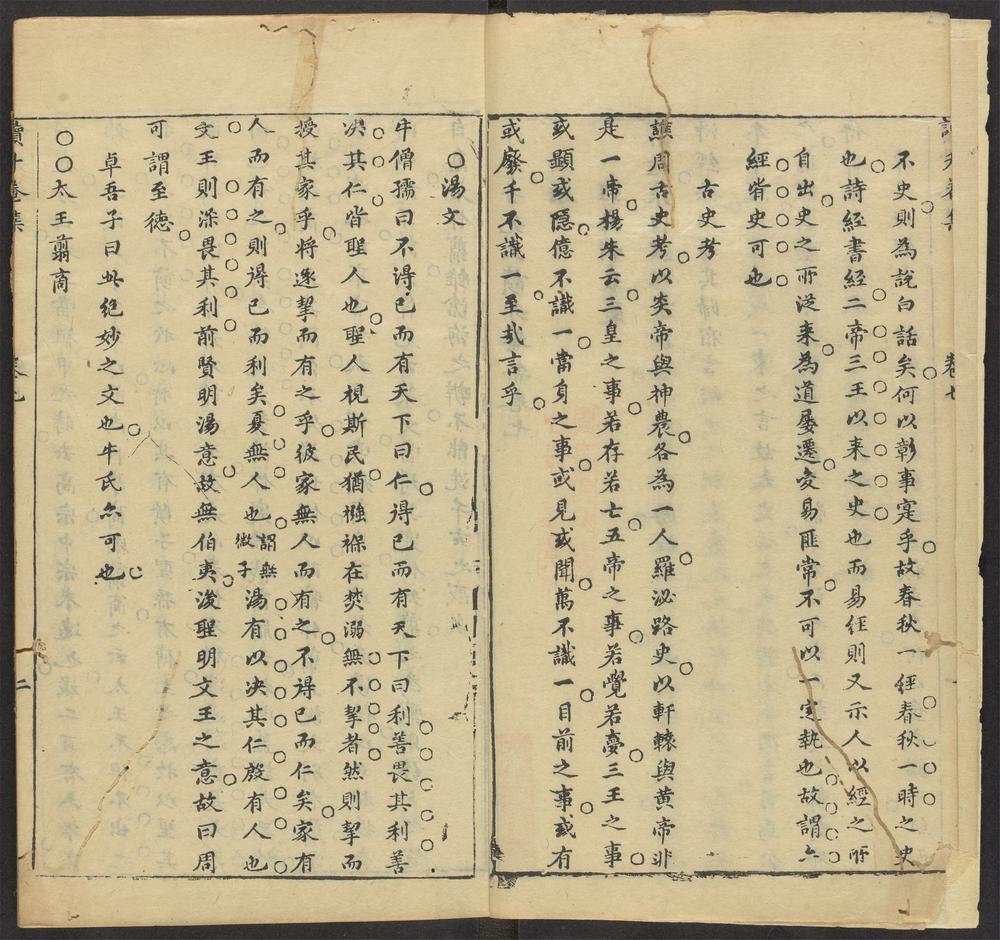 不史則為說白話矣何以彰事寔乎故春秋一經春秋一時之史
也詩經書經二帝三王以来之史也而易經則又示人以經之所
自出史之所從来為道屡遷变易匪常不可以一定執也故謂六
經皆史可也
古史考
譙周古史考以炎帝與神農各為一人羅泌路史以軒轅與黃帝非
是一帝楊朱云三皇之事若存若亡五帝之事若覺若夢三王之事
或顯或隱億不識一當身之事或見或聞萬不識一目前之事或有
或廢千不識一至㢤言乎
卷七
○湯文
牛僧孺曰不得已而有天下曰仁得已而有天下曰利善畏其利善
决其仁皆聖人也聖人視斯民猶襁褓在焚溺無不挈者然則挈而
授其家乎將遂挈而有之乎彼家無人而有之不得已而仁矣家有
人而有之則得已而利矣夏無人也謂無微子湯有以决其仁殷有人也
文王則深畏其利前賢明湯意故無伯夷後聖明文王之意故曰周
可謂至德
卓吾子曰此絶妙之文也牛氏亦可也
○○太王翦商
二